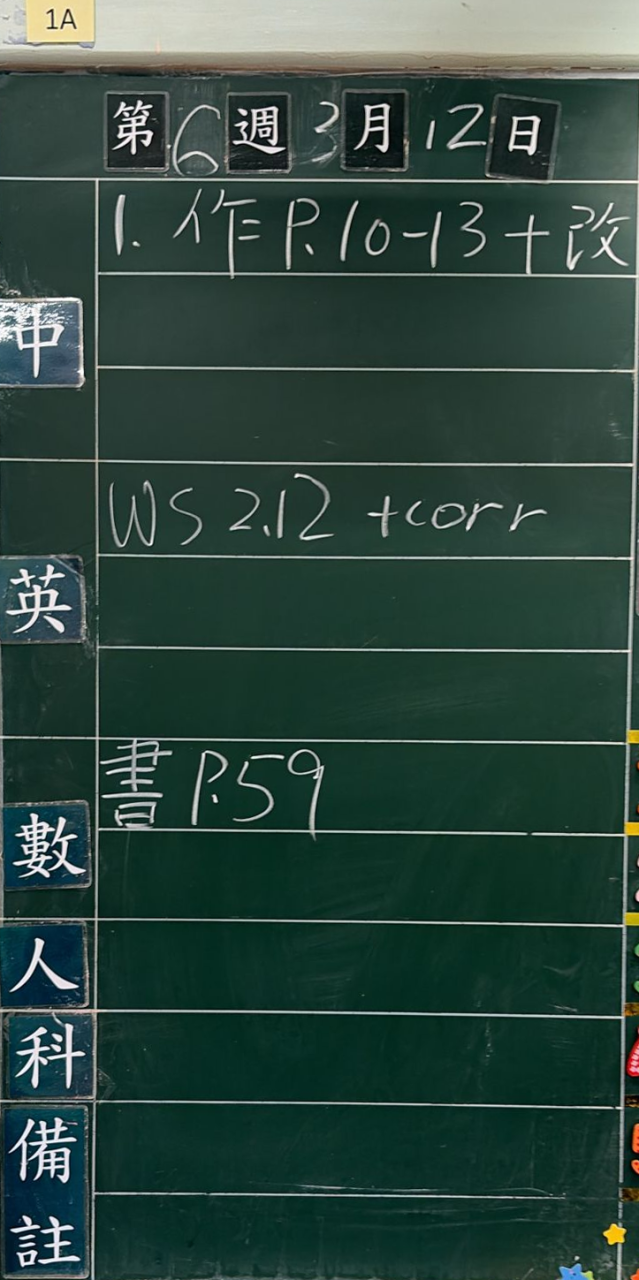 1A
第6週3月12日
1. 作 P.10-13+改
中
WS 2.12 +corr
英
書 P.59
數
人
科
備
註